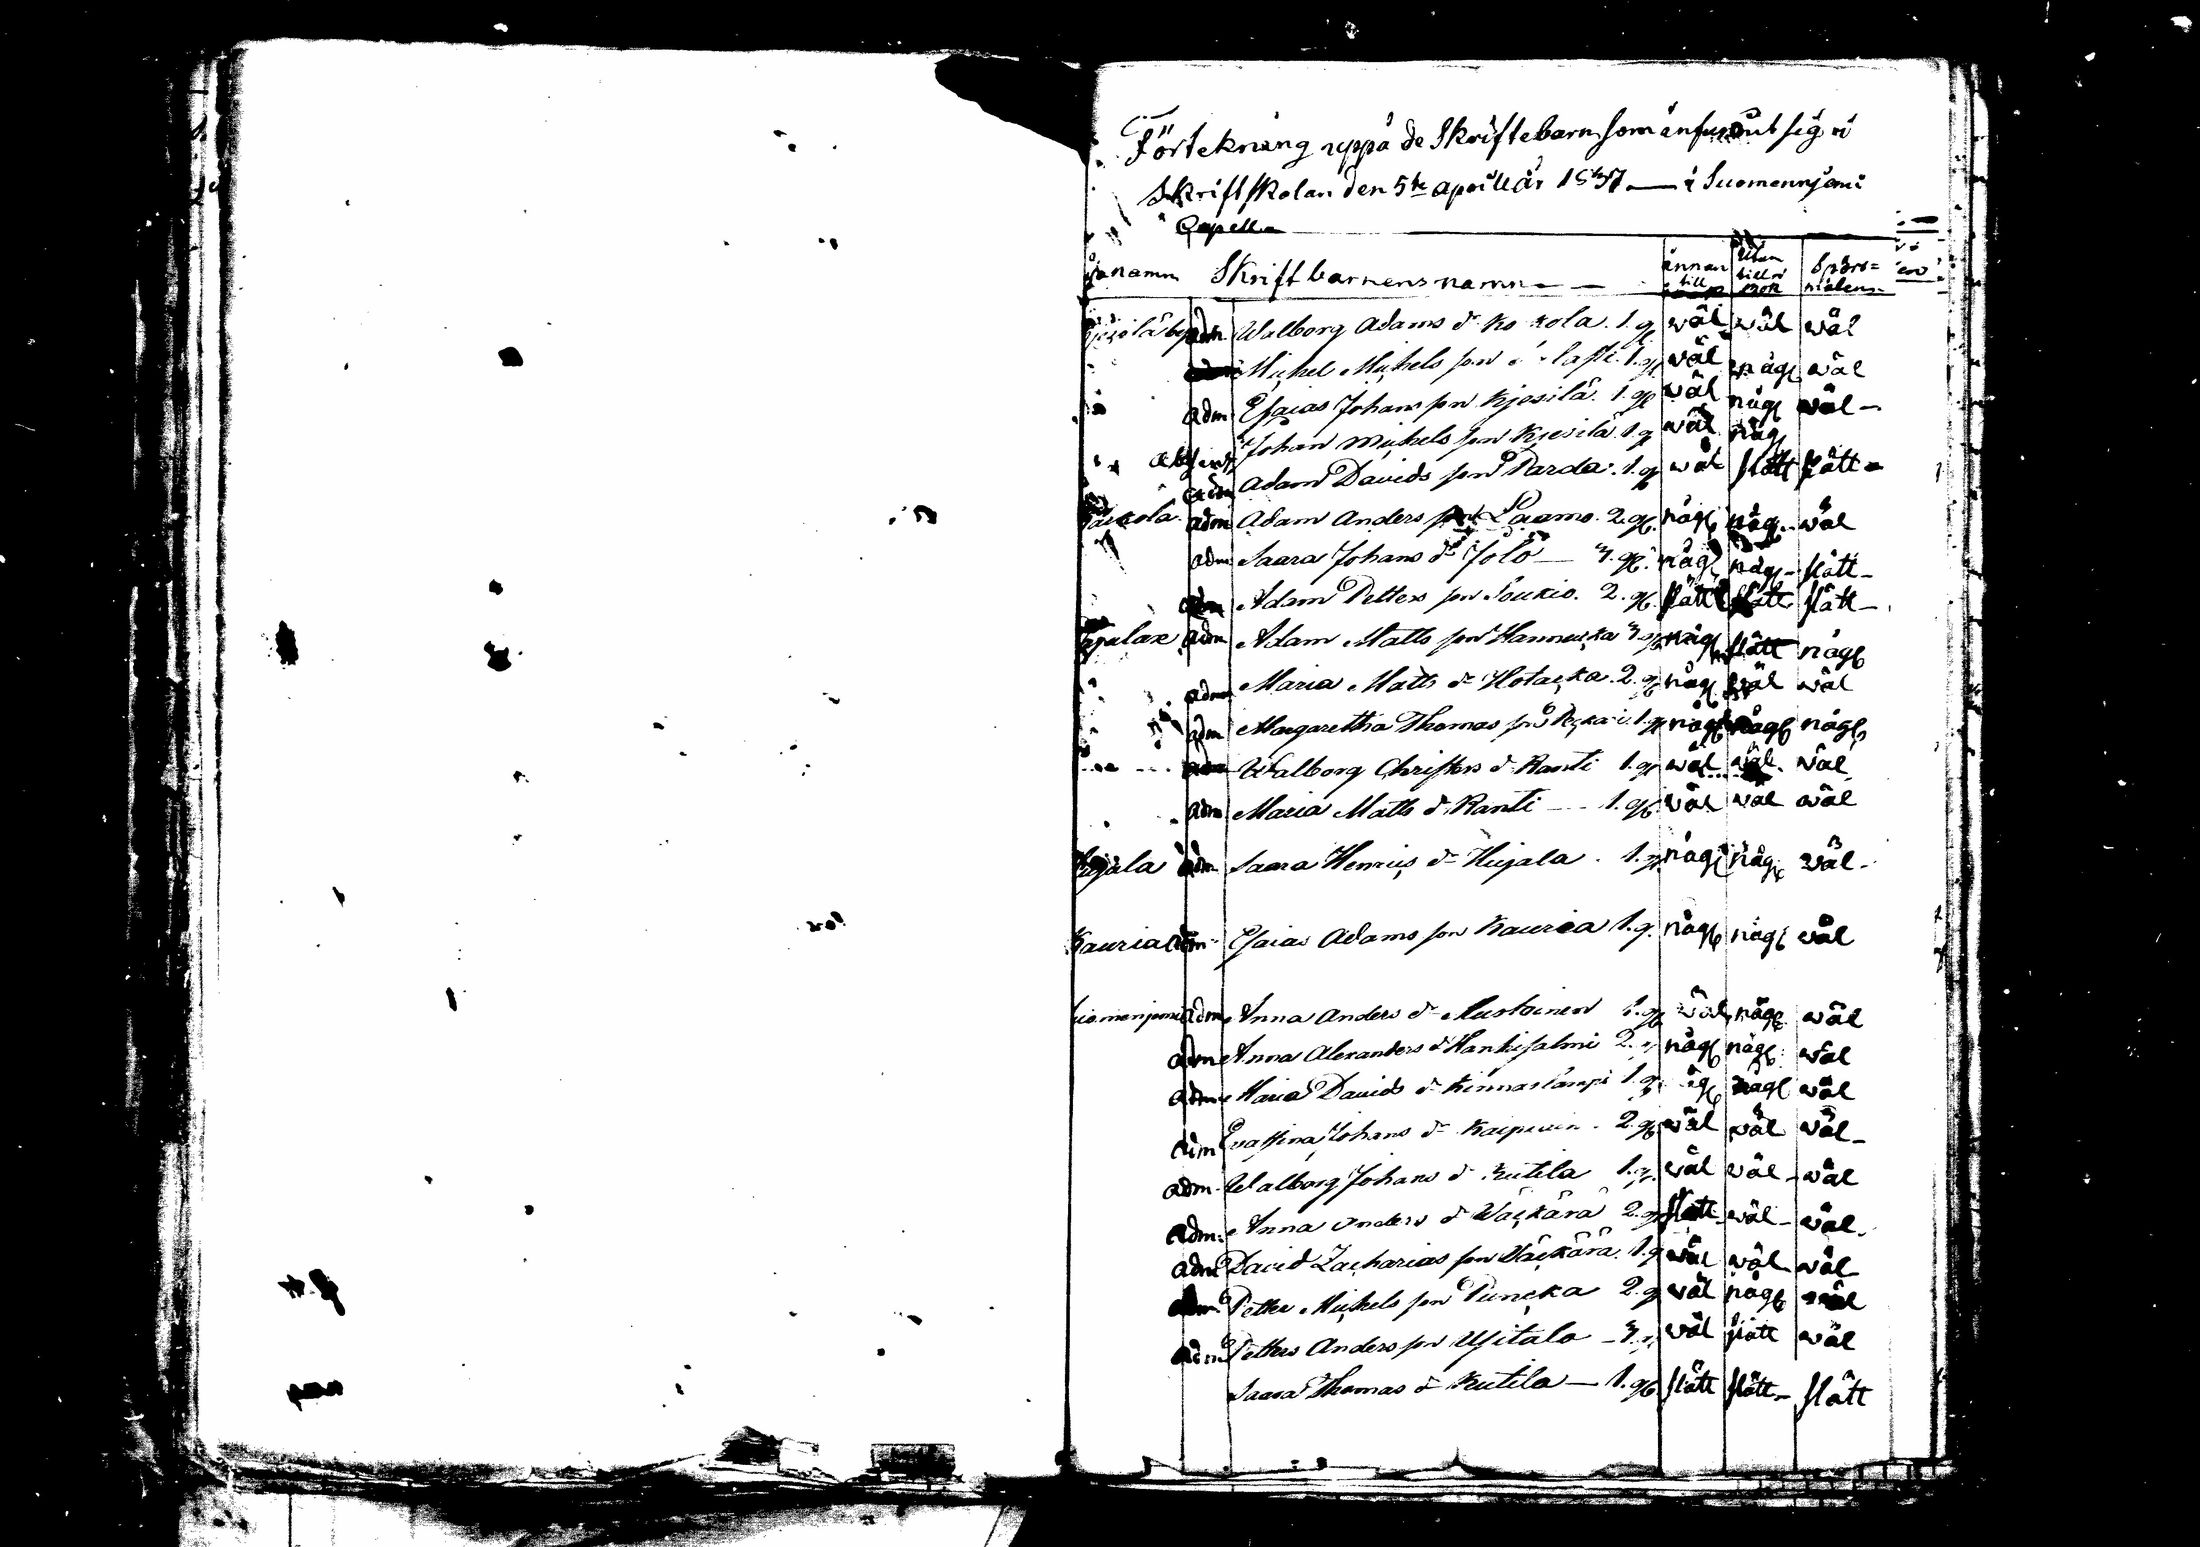 Förtekning uppå de Skriftebarn som infunnit sig i
Skriftskolan den 5te april år 1837 — i Suomenniemi
Capell
namn Skriftbarnens namn innan till utan till i bok Spörs=målen
adm Walborg Adams dr Kokola. 1. g wäl wäl wäl
Michel Michels son 1. g wäl någl wäl
adm Esaias Johans son Kjesilä. 1. gl wäl någl wäl
absent Johan Michels son Kjesilä 1. g wäl någ
adm Adam Davids son Parda. 1. g wäl slätt slätt
adm Adam Anders son Laamo. 2. gl. någl någl wäl
adm Saara Johans dr Jolo — 3. gl. någl någl slätt
adm Adam Petters son Soukio. 2. gl. slätt slätt slätt
adm Adam Matts son Hannucka 3 någl slätt någl
adm Maria Matts dr Hotacka. 2. g någl wäl wäl
adm Margaretha Thomas 1. gl någl någl någl
adm Walborg Christers dr Ranti 1. gl wäl wäl wäl
adm Maria Matts dr Ranti — 1. gl wäl wäl wäl
Hujala adm Saara Henrics dr Hujala. 1. g någl någl wäl
Kauria adm Esaias Adams son Kauria 1. g. någl någl wäl
adm Anna Anders dr Mustoinen 1. gl wäl någl wäl
adm Anna Alexanders dr Hankisalmi 2. någl någl wäl
adm Maria Davids dr Kinnarlampi 1. g någl wäl
adm Evastina Johans dr 2. gl wäl wäl wäl
adm Walborg Johans dr Kutila 1. g. wäl wäl wäl
adm Anna Anders dr Wäckärä 2. g slätt wäl wäl
adm David Zacharias son Wäckärä. 1. g wäl wäl wäl
adm Petter Michels son Puncka 2. g wäl någl wäl
adm Petters Anders son Usitalo — 3. g wäl slätt wäl
Saara Thomas dr Kutila — 1. gl slätt slätt slätt